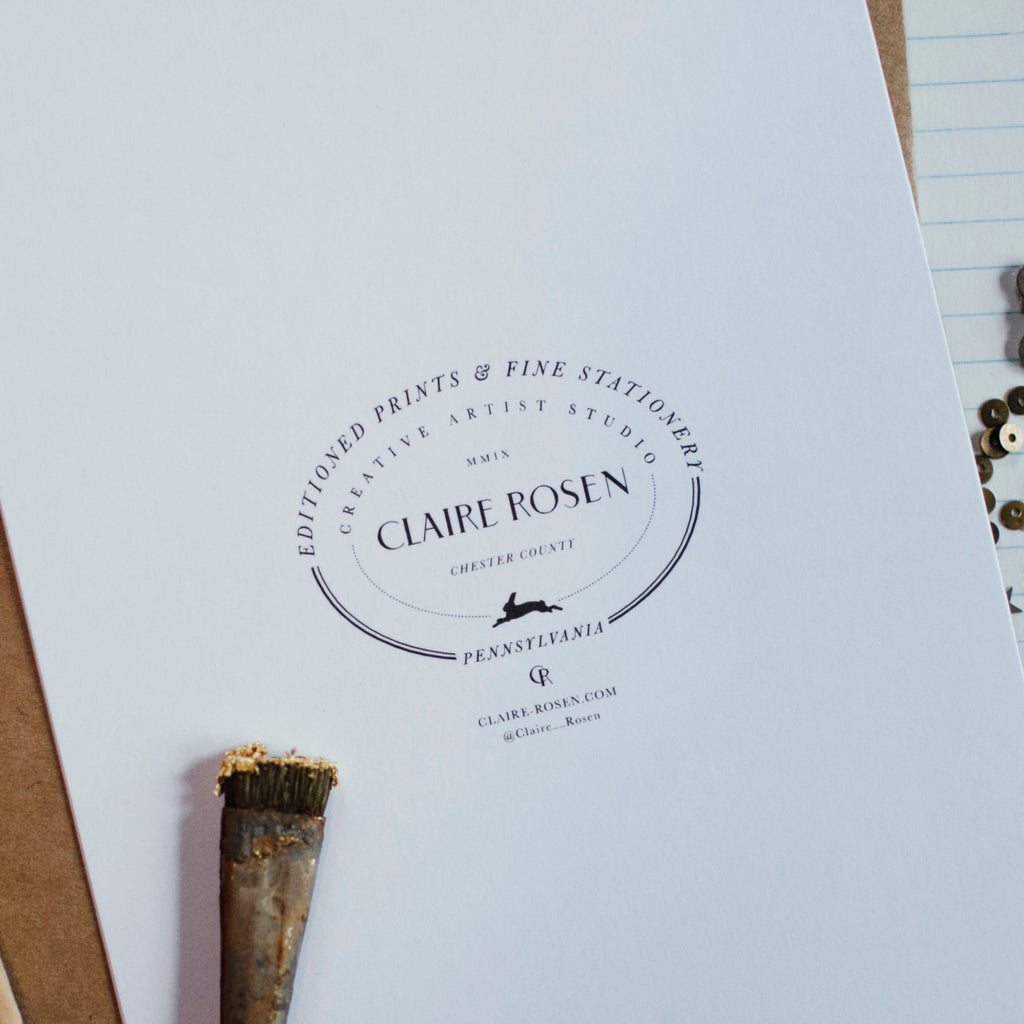 EDITIONED PRINTS & FINE STATIONERY
CREATIVE ARTIST STUDIO
MMIX
CLAIRE ROSEN
CHESTER COUNTY
PENNSYLVANIA
CR
CLAIRE-ROSEN.COM
@Claire__Rosen